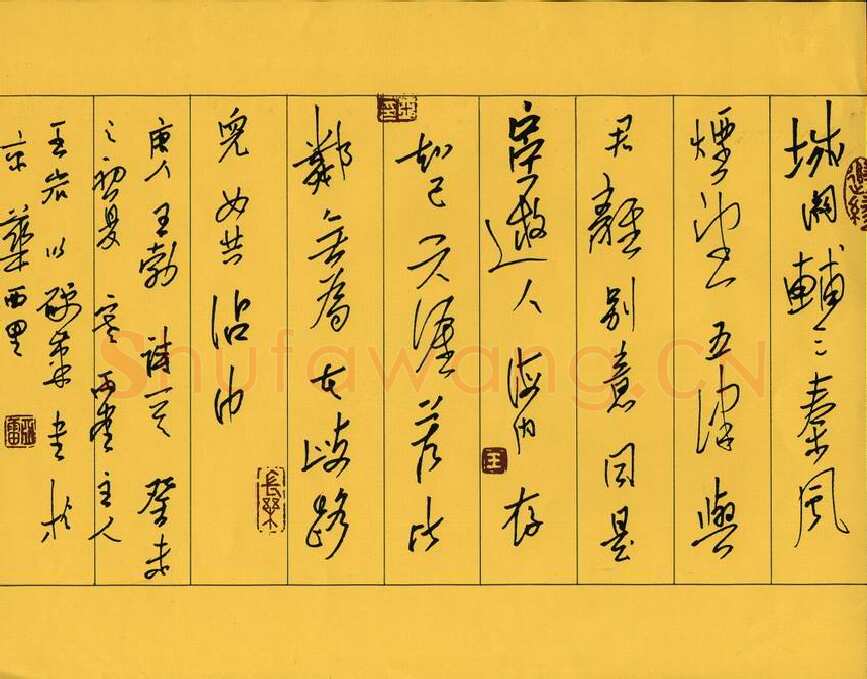 城闕輔三秦風
煙望五津與
君離別意同是
宦遊人海內存
知己天涯若比
鄰無為在歧路
兒女共沾巾
唐人王勃詩一首 癸未
之初夏 寒雨堂主人
王岩以硬筆書於
京華西里
長樂
王
Shufawang.CN